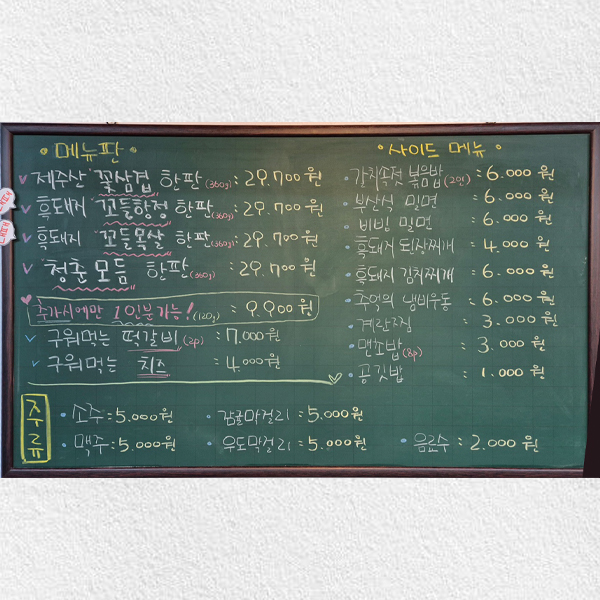 메뉴판
제주산 꽃삼겹 한판 (360g) : 29.700원
흑돼지 꼬들항정 한판 (360g) : 29.700원
흑돼지 꼬들목살 한판 (360g) : 29.700원
청춘 모듬 한판 (360g) : 29.700원
추가시에만 1인분 가능! (120g) : 9.900원
구워먹는 떡갈비 (2p) : 7.000원
구워먹는 치즈 : 4.000원
사이드 메뉴
갈치속젓 볶음밥 (2인) : 6.000원
부산식 밀면 : 6.000원
비빔 밀면 : 6.000원
흑돼지 된장찌개 : 4.000원
흑돼지 김치찌개 : 6.000원
추억의 냄비우동 : 6.000원
계란찜 : 3.000원
맨초밥 (8p) : 3.000원
공깃밥 : 1.000원
주류
소주 : 5.000원
감귤마걸리 : 5.000원
맥주 : 5.000원
우도막걸리 : 5.000원
음료수 : 2.000원